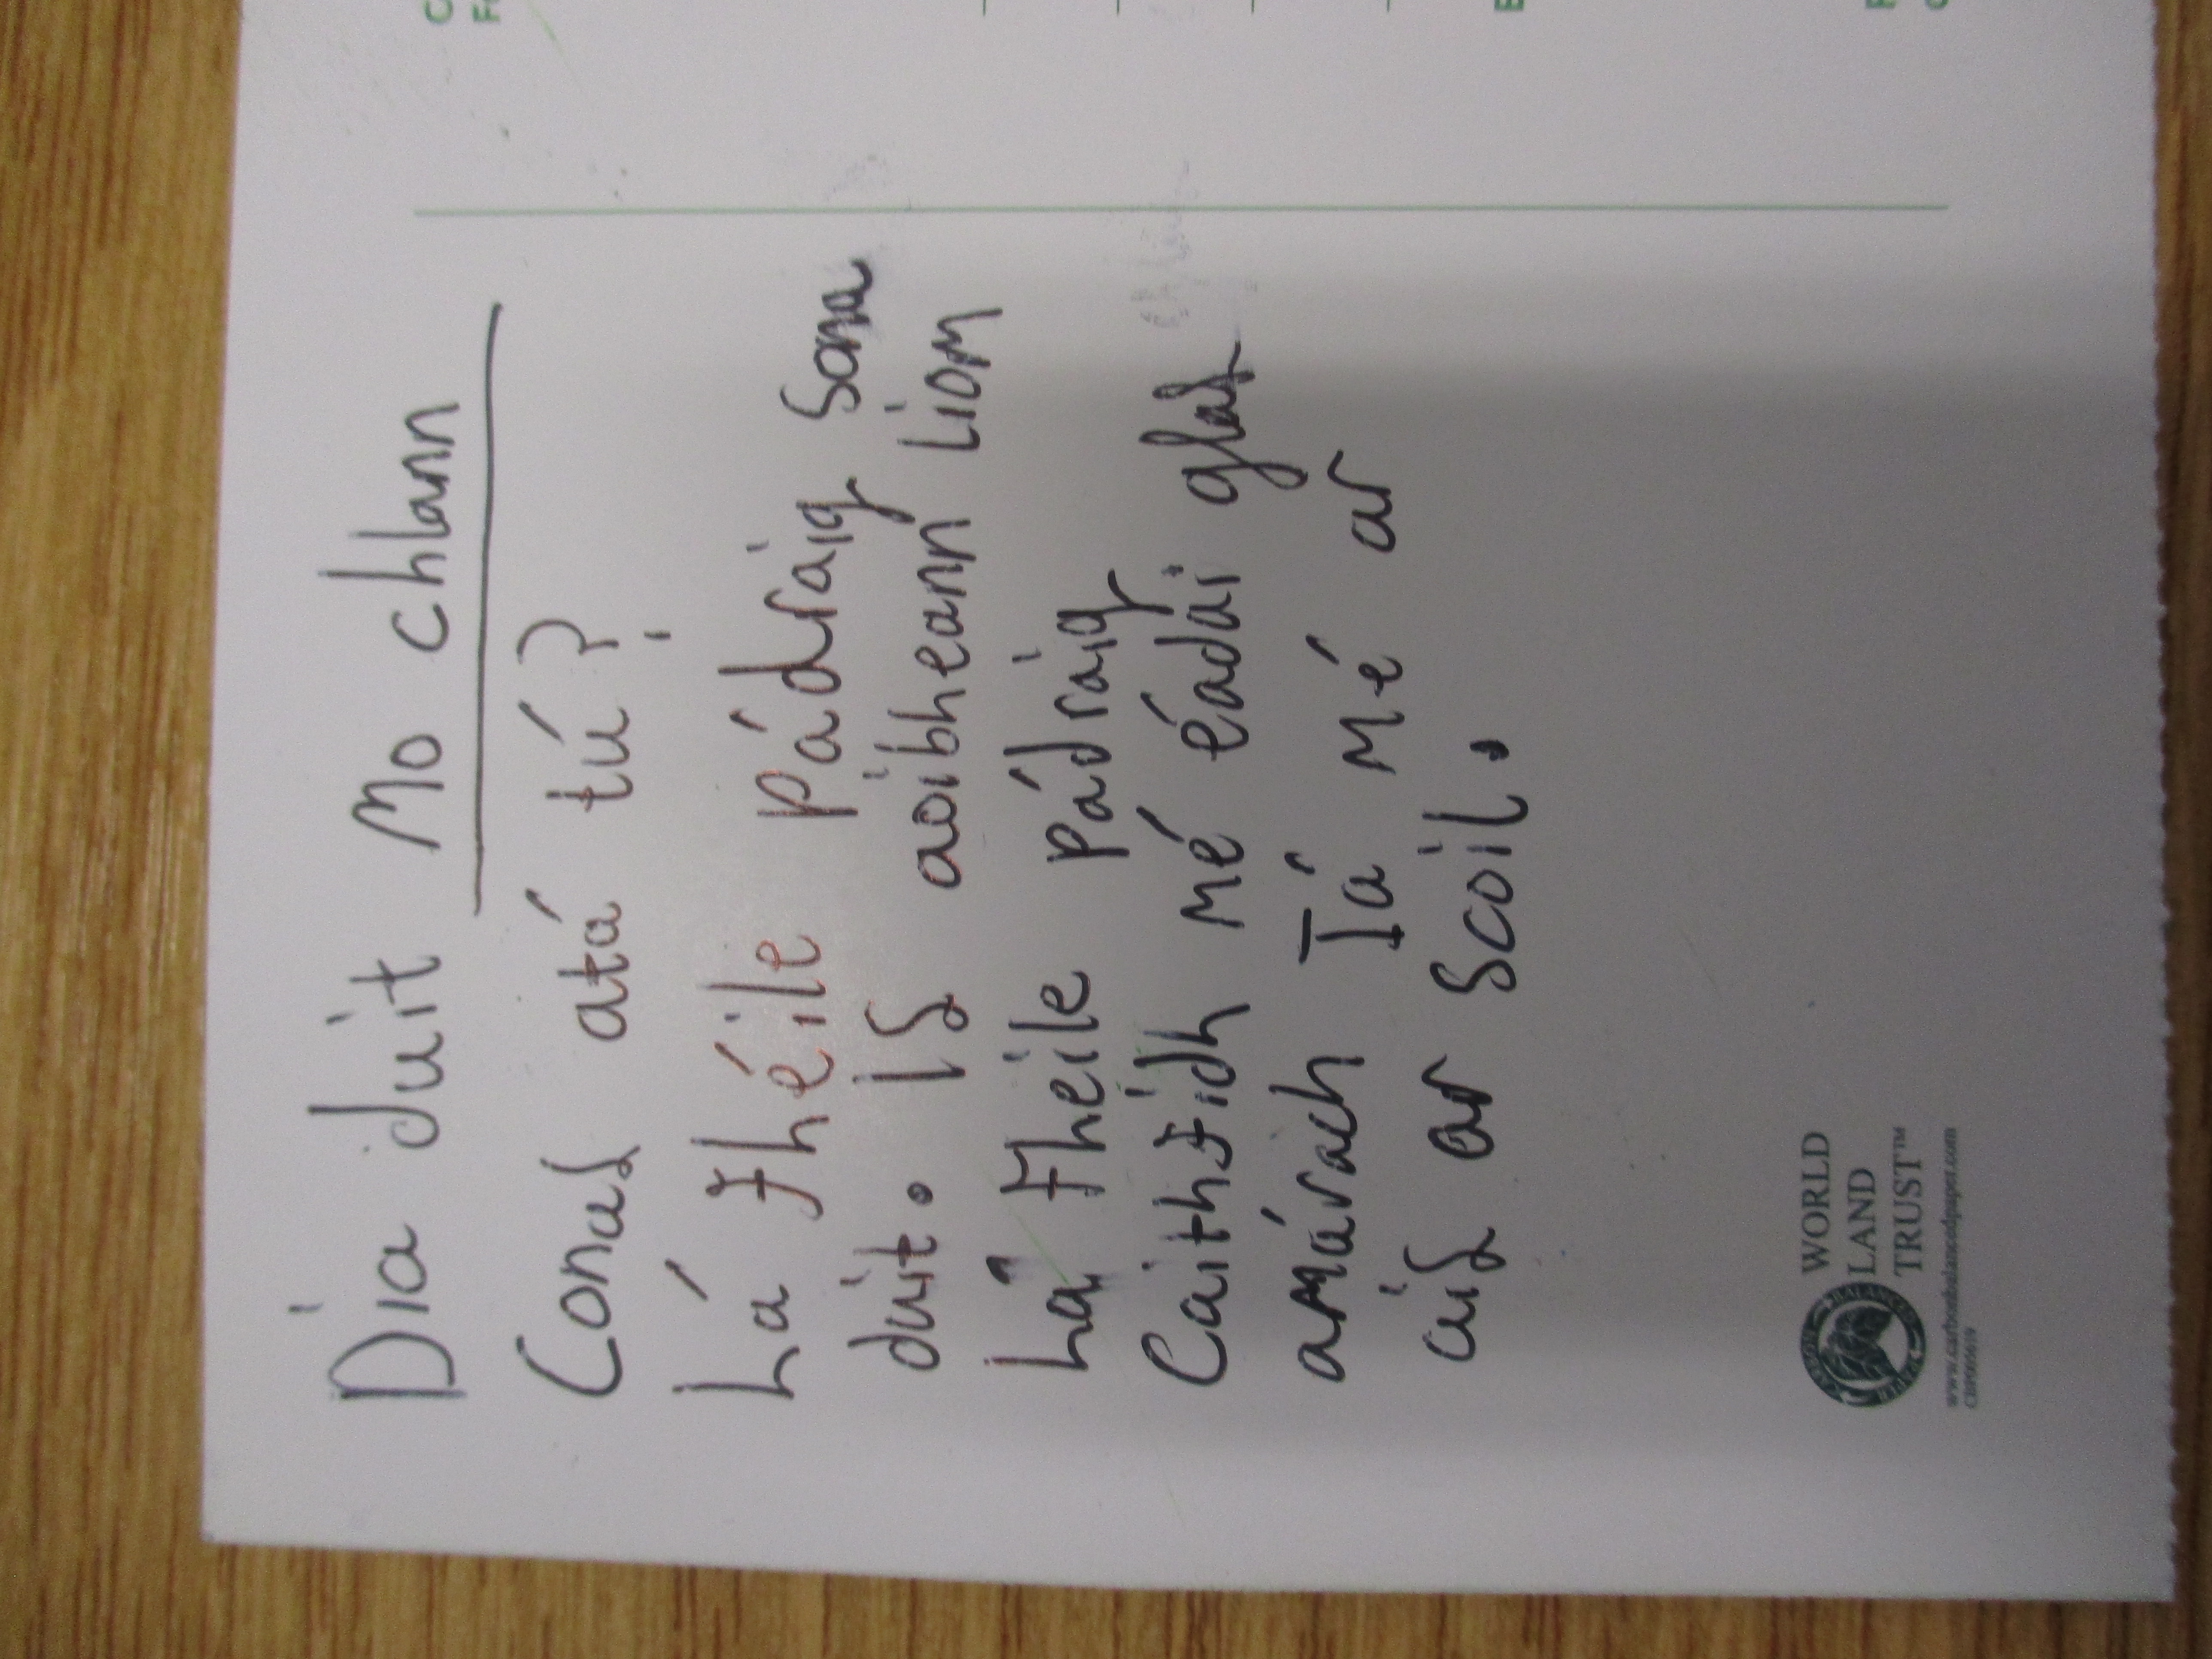 Dia duit Mo chlann
Conas atá tú?
Lá Fhéile Pádráig Sona
duit. Is aoibheann Liom
Lá Fheile Pádraig
Caithfidh mé éadaí glas
amárach Tá mé ar
ais ar scoil.
WORLD
LAND
TRUST™
www.carbonbalancedpaper.com